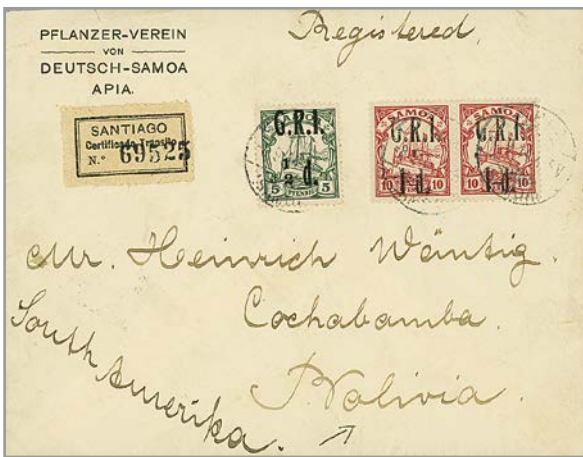 PFLANZER-VEREIN
VON
DEUTSCH-SAMOA
APIA.
Registered.
SANTIAGO
Certificado Tránsito
N.° 69525
SAMOA
G.R.I.
1/2 d.
5 PFENNIG 5
SAMOA
G.R.I.
1 d.
10 10
SAMOA
G.R.I.
1 d.
10 10
Mr. Heinrich Wäntig.
Cochabamba.
Bolivia.
South Amerika.